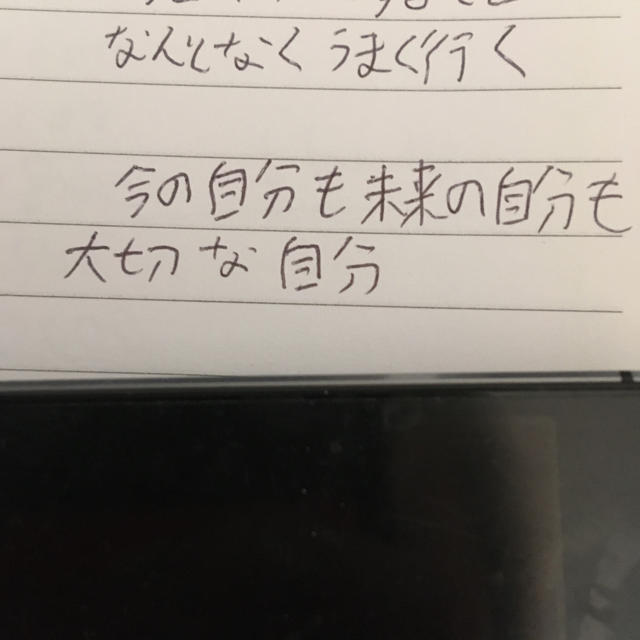 なんとなくうまく行く
今の自分も未来の自分も
大切な自分